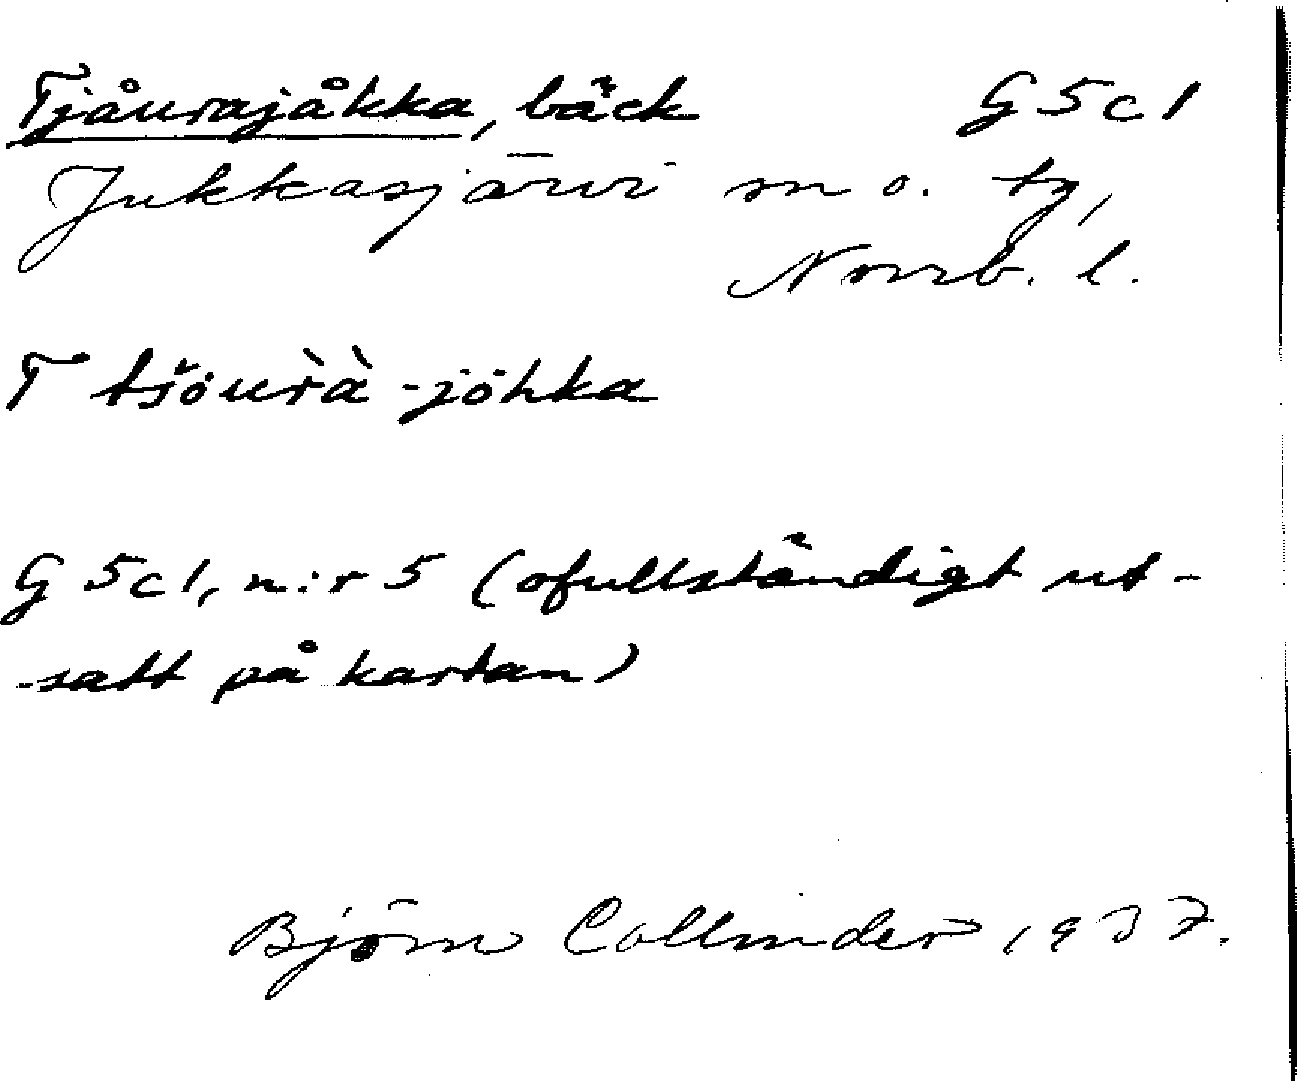 Tjåurajåkka, bäck G5c1
Jukkasjärvi sn o. tg,
Norrb. l.
T tšöurà̀ -jöhka
G 5c1, n:r 5 (ofullständigt ut-
-satt på kartan)
Björn Collinder 1937.